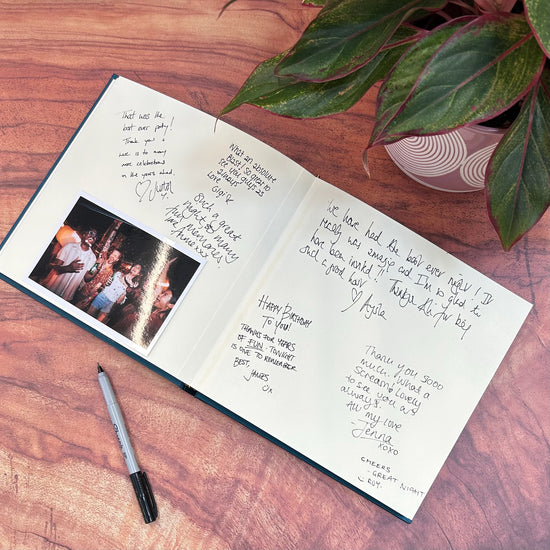 That was the
best ever party!
Thank you &
here is to many
more celebrations
in the years ahead.
♡
What an absolute
Blast! So great to
see you guys as
always
Love
Gigi x
Such a great
night. So many
fun memories.
love Anne xxx
We have had the best ever night! It
really was amazing and I'm so glad to
have been invited! Thanks
and a good
♡
HAPPY BIRTHDAY
TO YOU!
THANKS FOR YEARS
OF FUN. TONIGHT
IS ONE TO REMEMBER
BEST,
JAMES
OX
Thank you sooo
much. What a
scream! Lovely
to see you as
always.
All my love
- Jenna
xoxo
CHEERS
- GREAT NIGHT
Sharpie